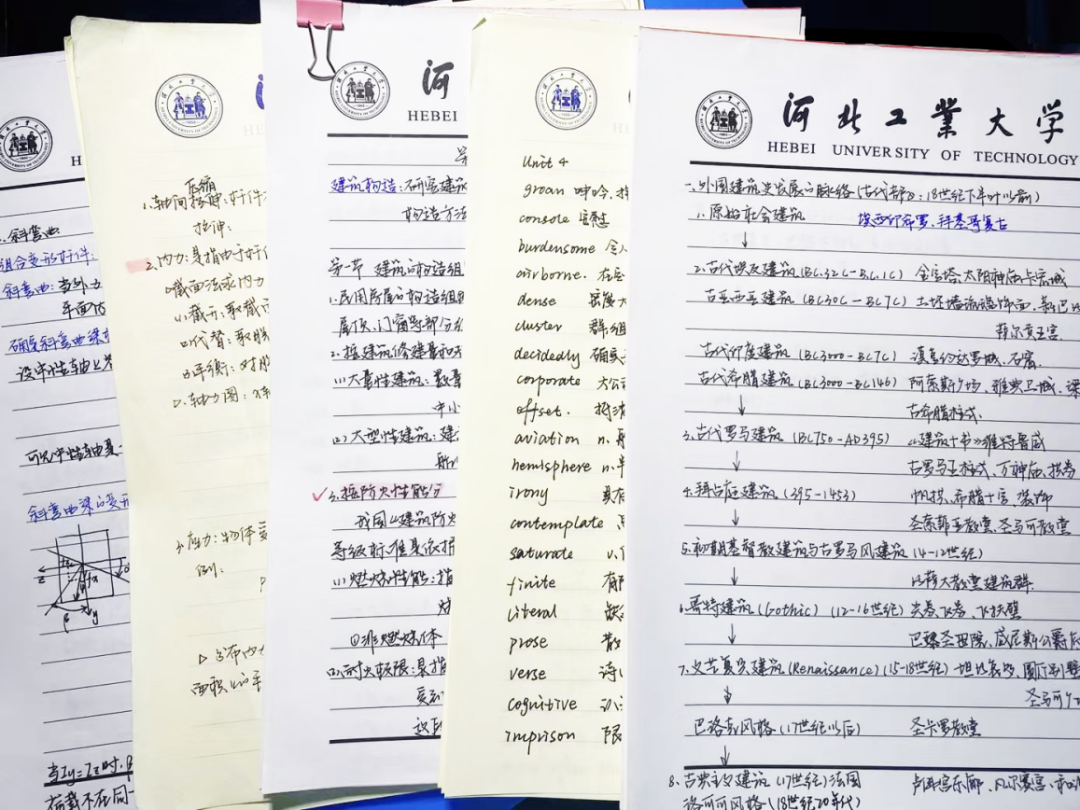 斜弯曲
组合变形杆件:
斜弯曲: 当外力
平面
可见中性轴是一
斜弯曲梁的变形
z
y
β
当Iy=Iz时,
荷载不在同一
压缩
拉伸
2.内力: 是指由于杆件
截面法求内力
(1)截开: 取截
(2)代替: 取
(3)平衡: 对
2.轴力图:
3.应力: 物体受
例:
分布内力
面积上的平
河
HEBEI
建筑构造: 研究建筑
构造方法
第一节 建筑的构造组
1.民用房屋的构造组
屋顶、门窗等部分
2.按建筑修建量和
(1)大量性建筑: 数量
中小
(2)大型性建筑: 建
✓3.按防火性能分
我国《建筑防火
等级标准是依据
(1)燃烧性能: 指
①非燃烧体
(2)耐火极限: 是指
Unit 4
groan 呻吟,
console 安慰
burdensome 令人
airborne.
dense 密度大
cluster 群组
decidedly 确
corporate 大公司
offset.
aviation n. 航
hemisphere n. 半
irony 具有
contemplate
saturate v.
finite 有限
literal
prose 散
verse 诗
cognitive 认
imprison 限
河北工業大学
HEBEI UNIVERSITY OF TECHNOLOGY
一.外国建筑史发展的脉络(古代部分: 18世纪下半叶以前)
1.原始社会建筑 埃西印希罗、拜基哥复古
↓
2.古代埃及建筑(BC.32C-BC.1C) 金字塔、太阳神庙、卡宏城
古西亚建筑(BC30C-BC7C) 土坯墙琉璃饰面、新巴比
古代印度建筑(BC3000-BC7C) 莫亨约达罗城、石窟
古代希腊建筑(BC3000-BC146) 阿索斯广场、雅典卫城、
古希腊柱式
↓
3.古代罗马建筑(BC750-AD395) 《建筑十书》维特鲁威
↓ 古罗马五柱式、万神庙、拱券
4.拜占庭建筑(395-1453) 帆拱、希腊十字、装饰
↓ 圣索菲亚教堂、圣马可教堂
5.初期基督教建筑与古罗马风建筑(4-12世纪)
比萨大教堂建筑群
6.哥特建筑(Gothic)(12-16世纪) 尖券、飞券、飞扶壁
↓ 巴黎圣母院、威尼斯公爵府
7.文艺复兴建筑(Renaissance)(15-18世纪) 坦比哀多、圆厅别墅
↓ 圣马可广
巴洛克风格(17世纪以后) 圣卡罗教堂
↓
8.古典主义建筑(17世纪)法国 卢浮宫东廊、凡尔赛宫、
洛可可风格(18世纪20年代)